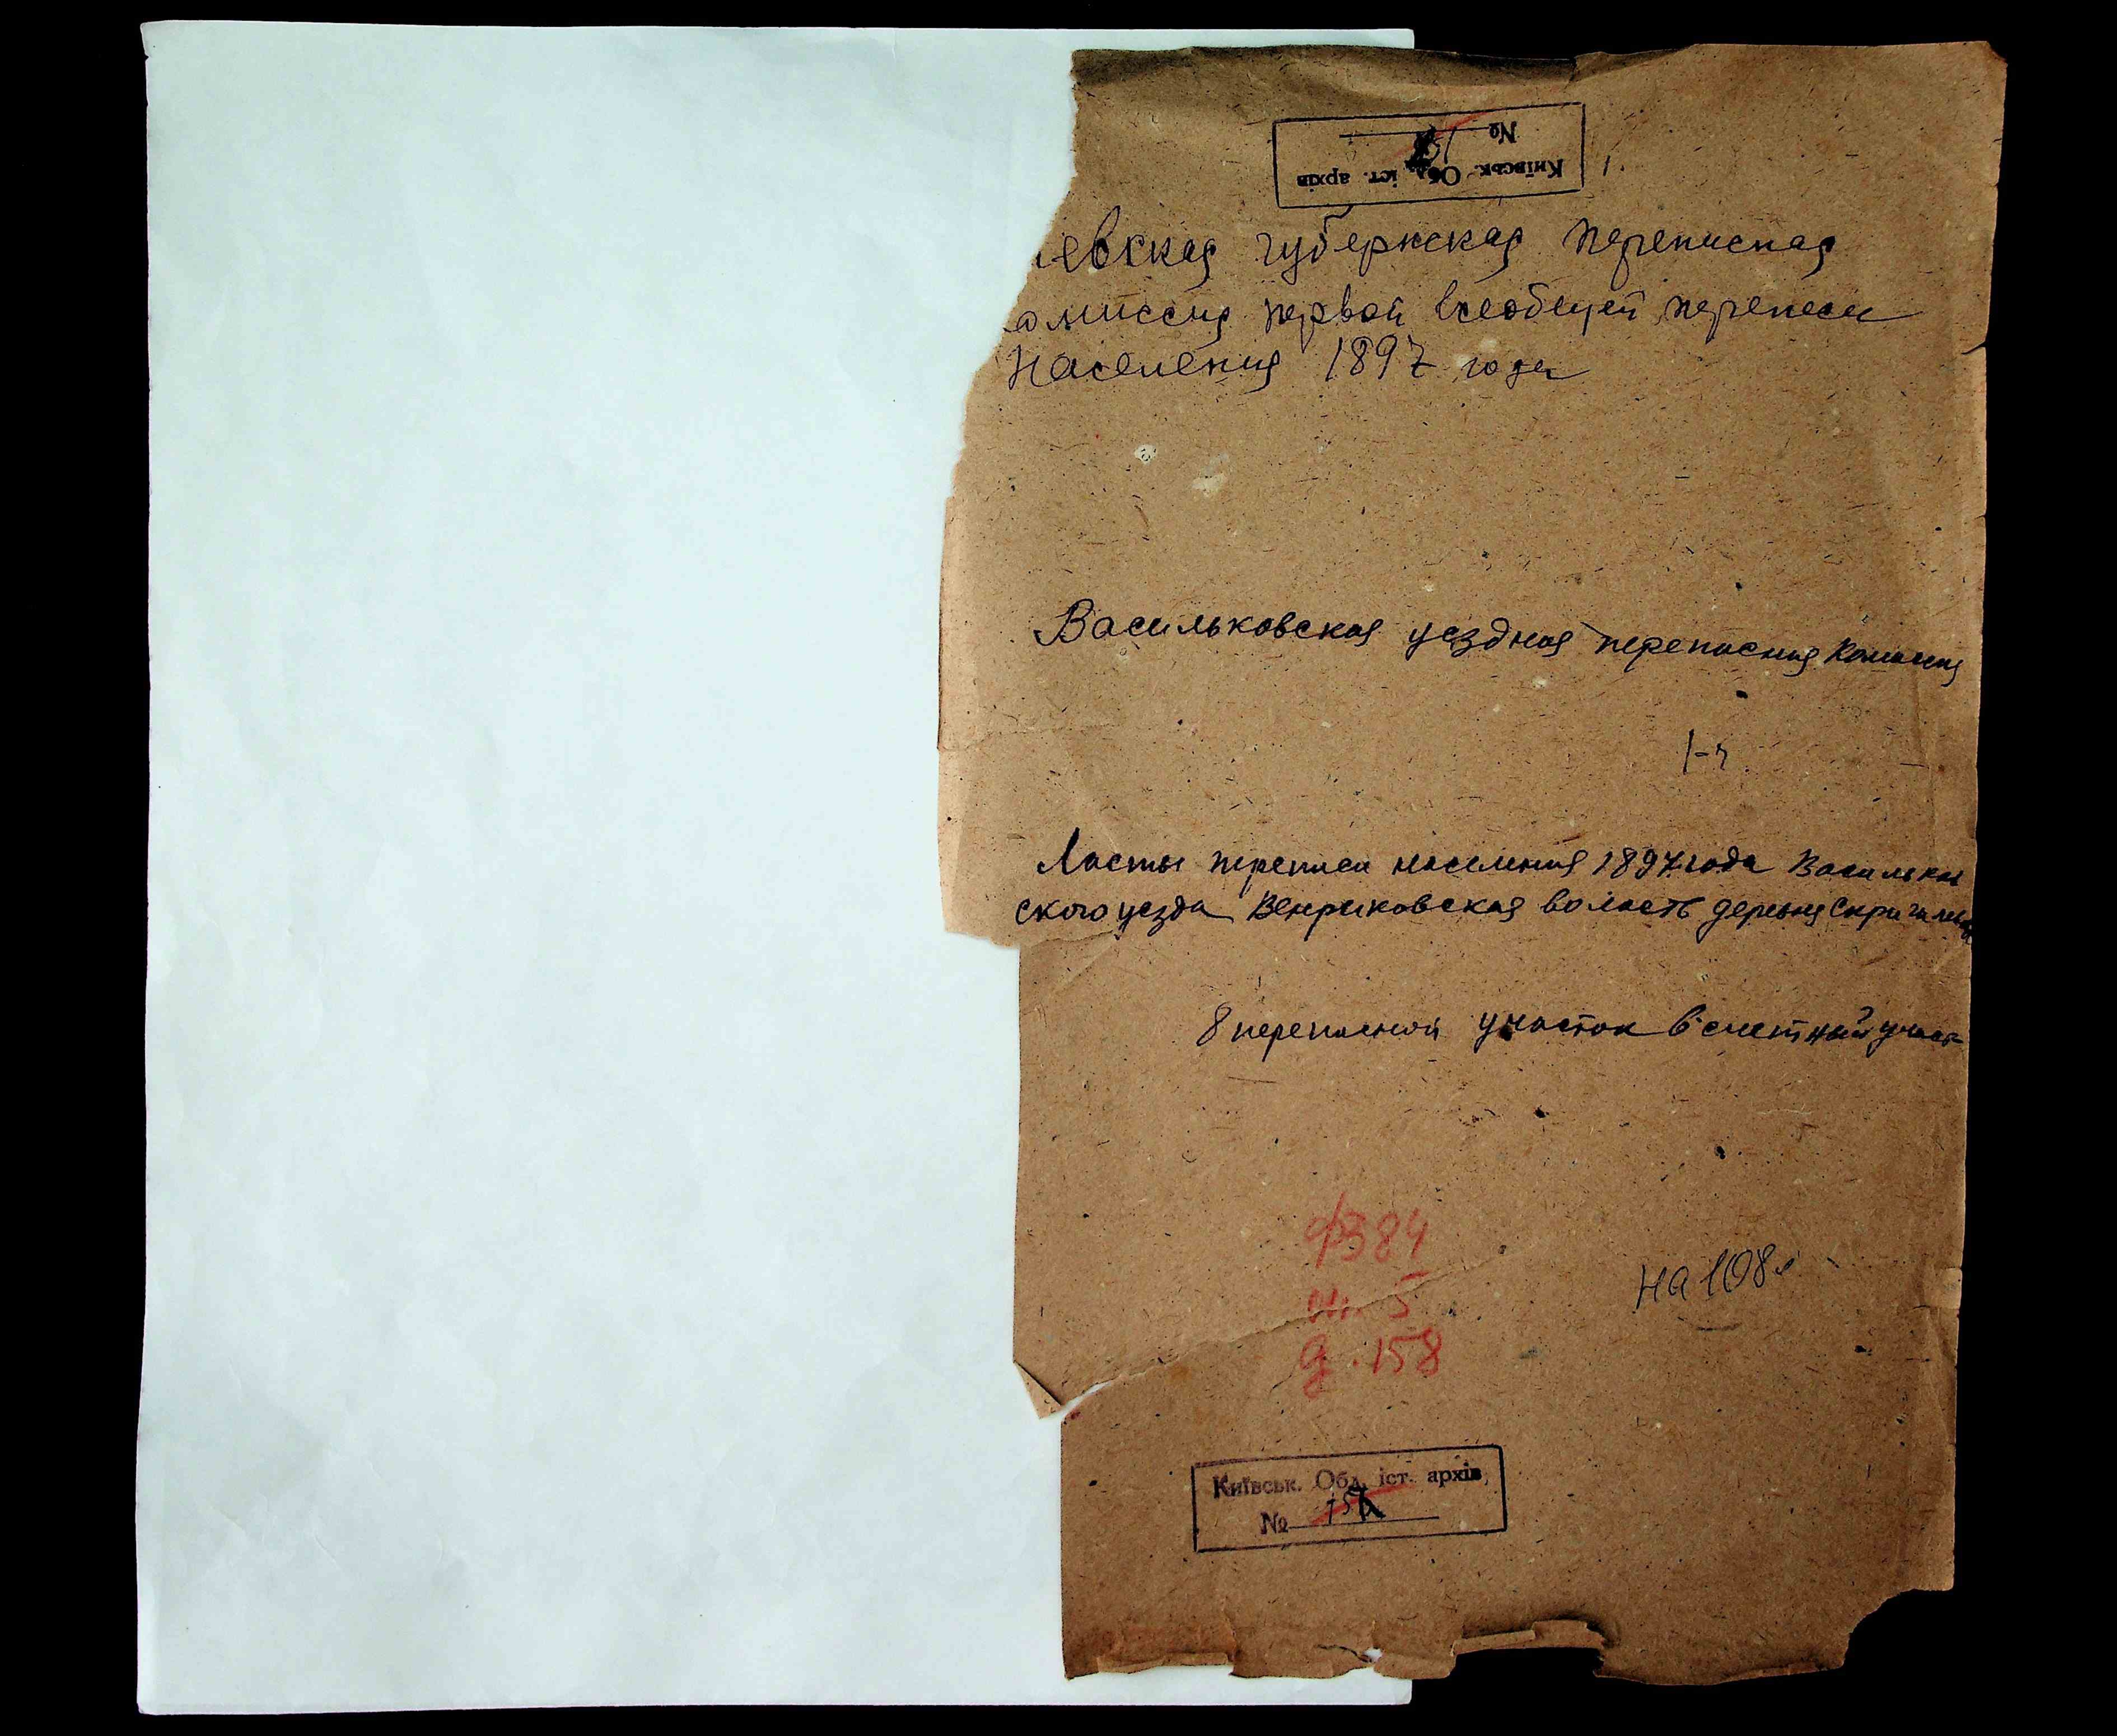 Київськ. Обл. іст. архів
№
евская губернская переписная
омиссия первой всеобщей переписи
населения 1897 года
Васильковская уездная переписная комиссия
1-ч.
Листы переписи населения 1897 года Васильков
ского уезда Венриковская волость деревня
8 переписной участок 6 счетный участ
ф 384
оп. 5
д. 158
на 108 л
Київськ. Обл. іст. архів
№